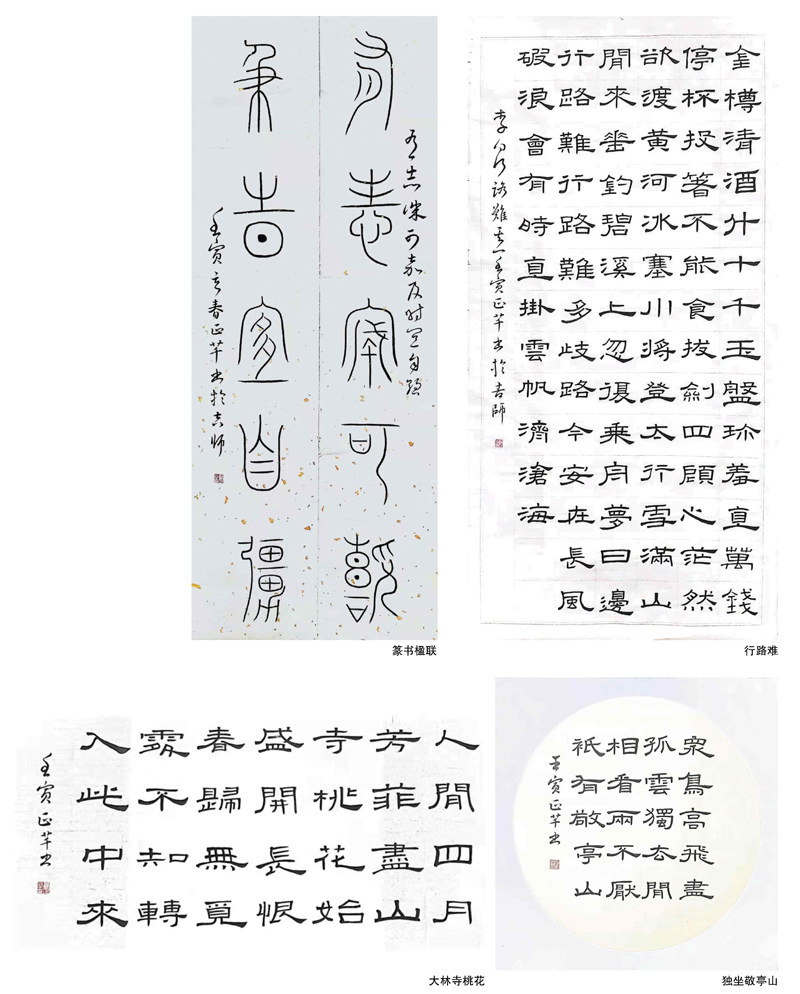 有志誠可嘉
有志诚可嘉及时宜自强
及時宜自彊
壬寅之春正芊书於吉师
篆书楹联
金樽清酒斗十千玉盤珎羞直萬錢
停杯投箸不能食拔劍四顧心茫然
欲渡黄河冰塞川將登太行雪滿山
閒來垂釣碧溪上忽復乘舟夢日邊
行路難行路難多歧路今安在長風
破浪會有時直掛雲帆濟滄海
李白行路难其一壬寅正芊书於吉師
行路难
人閒四月
芳菲盡山
寺桃花始
盛開長恨
春歸無覓
處不知轉
入此中來
壬寅正芊书
大林寺桃花
衆鳥高飛盡
孤雲獨去閒
相看兩不厭
衹有敬亭山
壬寅正芊书
独坐敬亭山